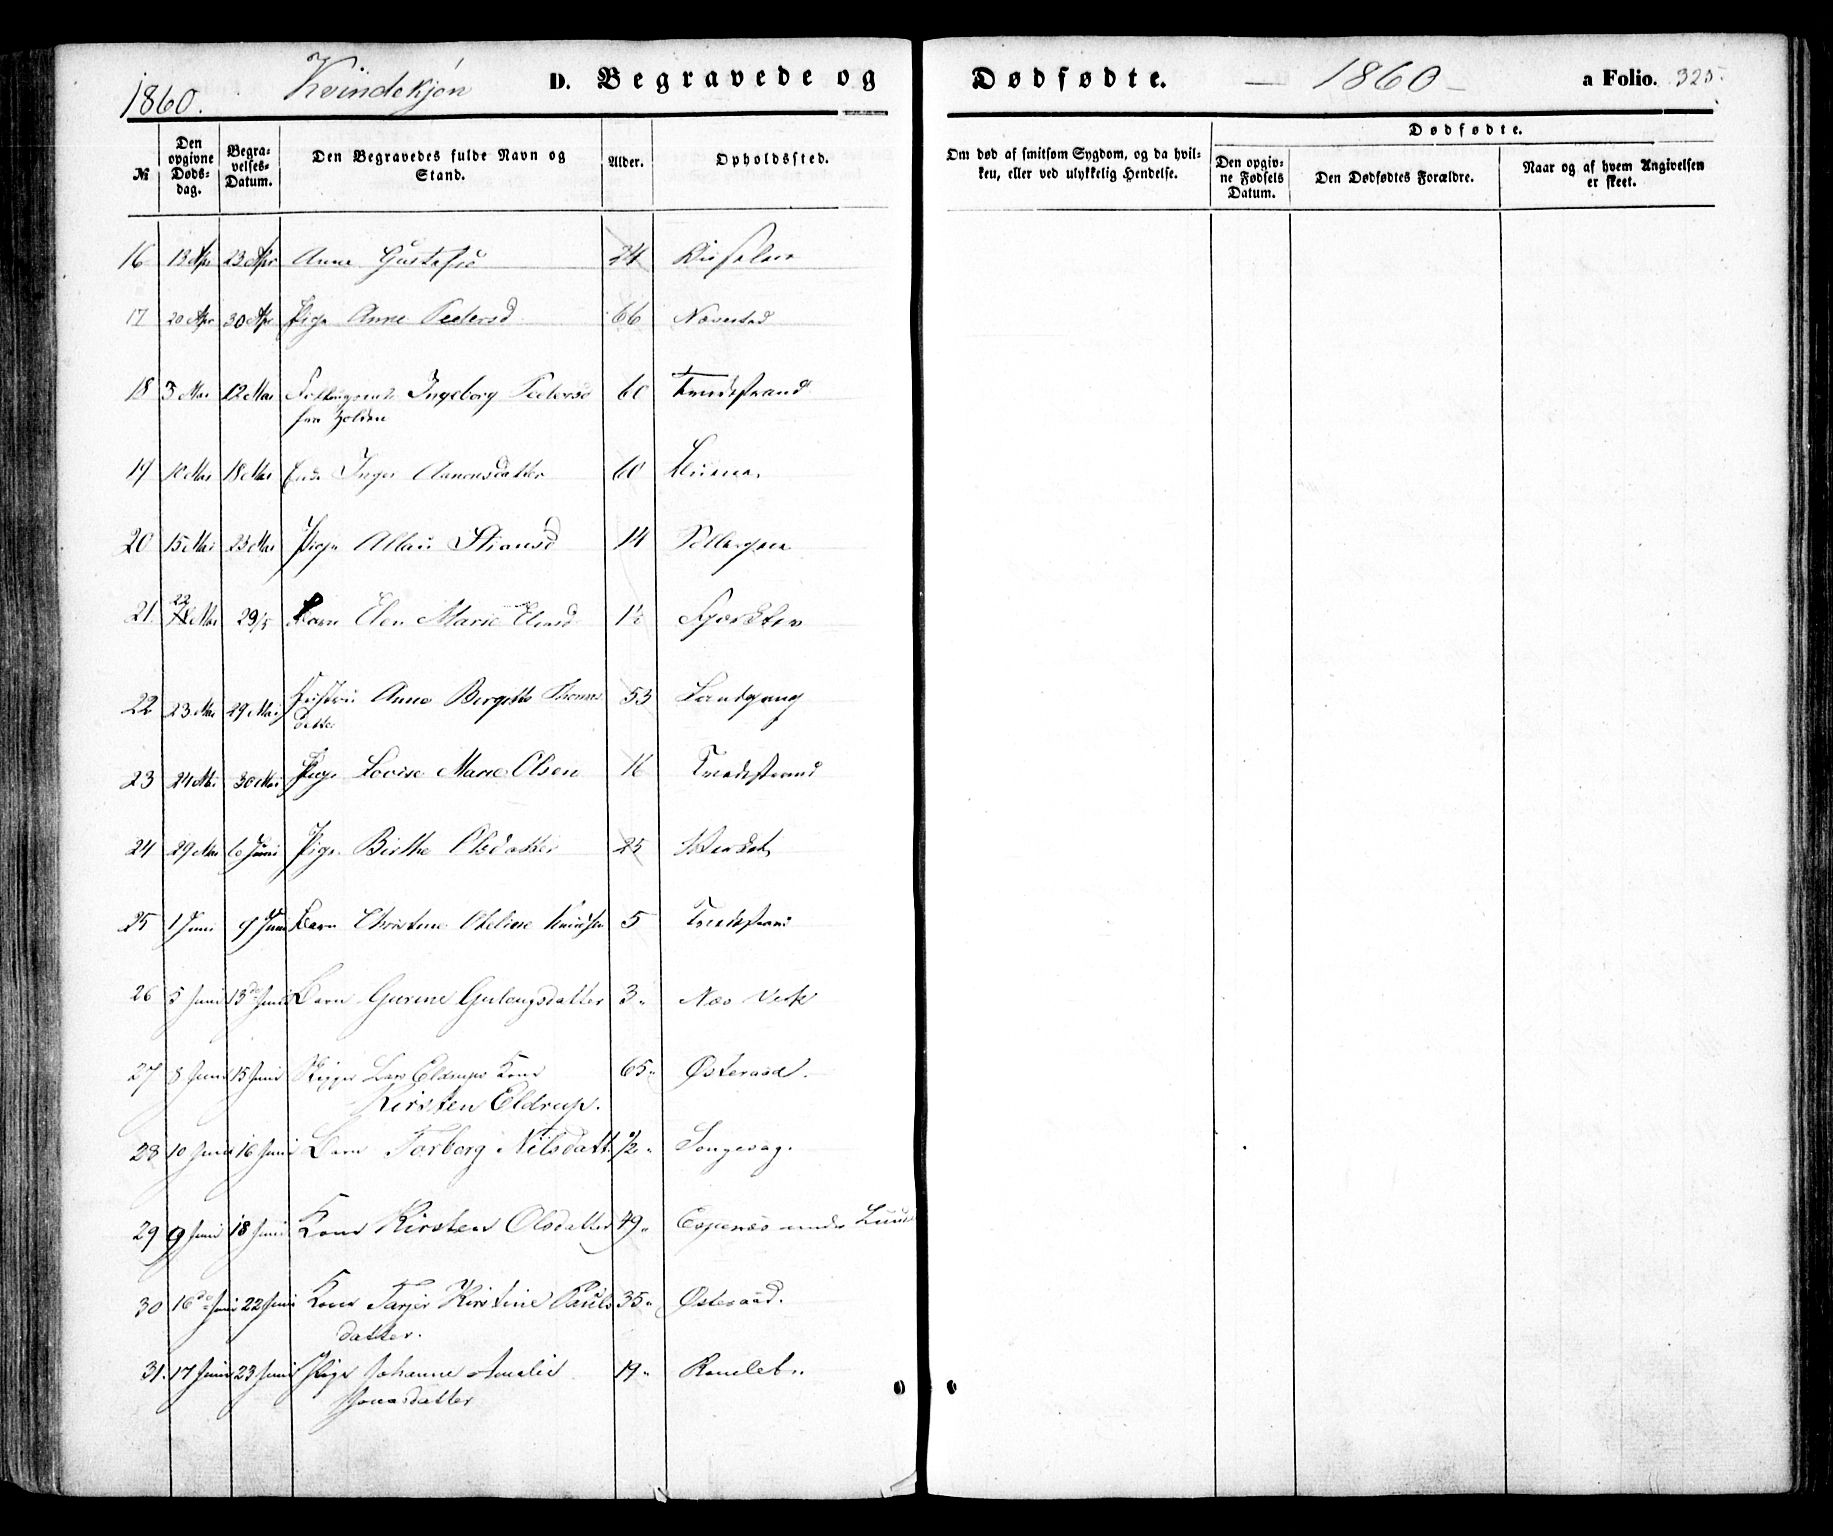 1860. Kvindekjøn D. Begravede og Dødfødte. — 1860 — a Folio. 325
№ | Den opgivne Døds-dag. | Begra-velses-Datum. | Den Begravedes fulde Navn og Stand. | Alder. | Opholdssted. | Om død af smitsom Sygdom, og da hvil-ken, eller ved ulykkelig Hendelse. | Dødfødte. | Den opgiv-ne Fødsels Datum. | Den Dødfødtes Forældre. | Naar og af hvem Angivelsen er skeet.
16 | 18 Apr | 23 Apr | Anne | 24
17 | 20 Apr | 30 Apr | Pige Anne Peetersd | 66 | Næverstad
18 | 5 Mai | 12 Mai | Ingeborg Petersd | 60 | Tvedestrand
fra Holden
19 | 10 Mai | 18 Mai | Enke Inger | 60
20 | 15 Mai | 23 Mai | Pige | 14
21 | 22 Mai | 29/5 | Barn Elen Marie | 1½
22 | 23 Mai | 29 Mai | Anne Bergitte Thomas | 53 | Sandgang
datter
23 | 24 Mai | 30 Mai | Pige Lovise Marie Olsen | 16 | Tvedestrand
24 | 29 Mai | 6 Juni | Pige Birthe Olsdatter | 25
25 | 1 Juni | 9 Juni | Barn Christine | 5 | Tvedestrand
26 | 5 Juni | 13de Juni | Barn Gurine Gulougsdatter | 3 | Næs Verk
27 | 8 Juni | 15 Juni | Skipper Lars Eldrups Kone | 65 | Østeraad.
Kirsten Eldrup.
28 | 10 Juni | 16 Juni | Barn Torborg Nilsdatt. | ½ | Songevaag.
29 | 9 Juni | 18 Juni | Kone Kirsten Olsdatter | 49 | Espenæs under
30 | 16de Juni | 22 Juni | Kone Tarjer Kirstine Pauls | 35 | Østeraad.
datter.
31. | 17 Juni | 23 Juni | Pige Johanne Amalie | 19 | Ramlet
Jonasdatter